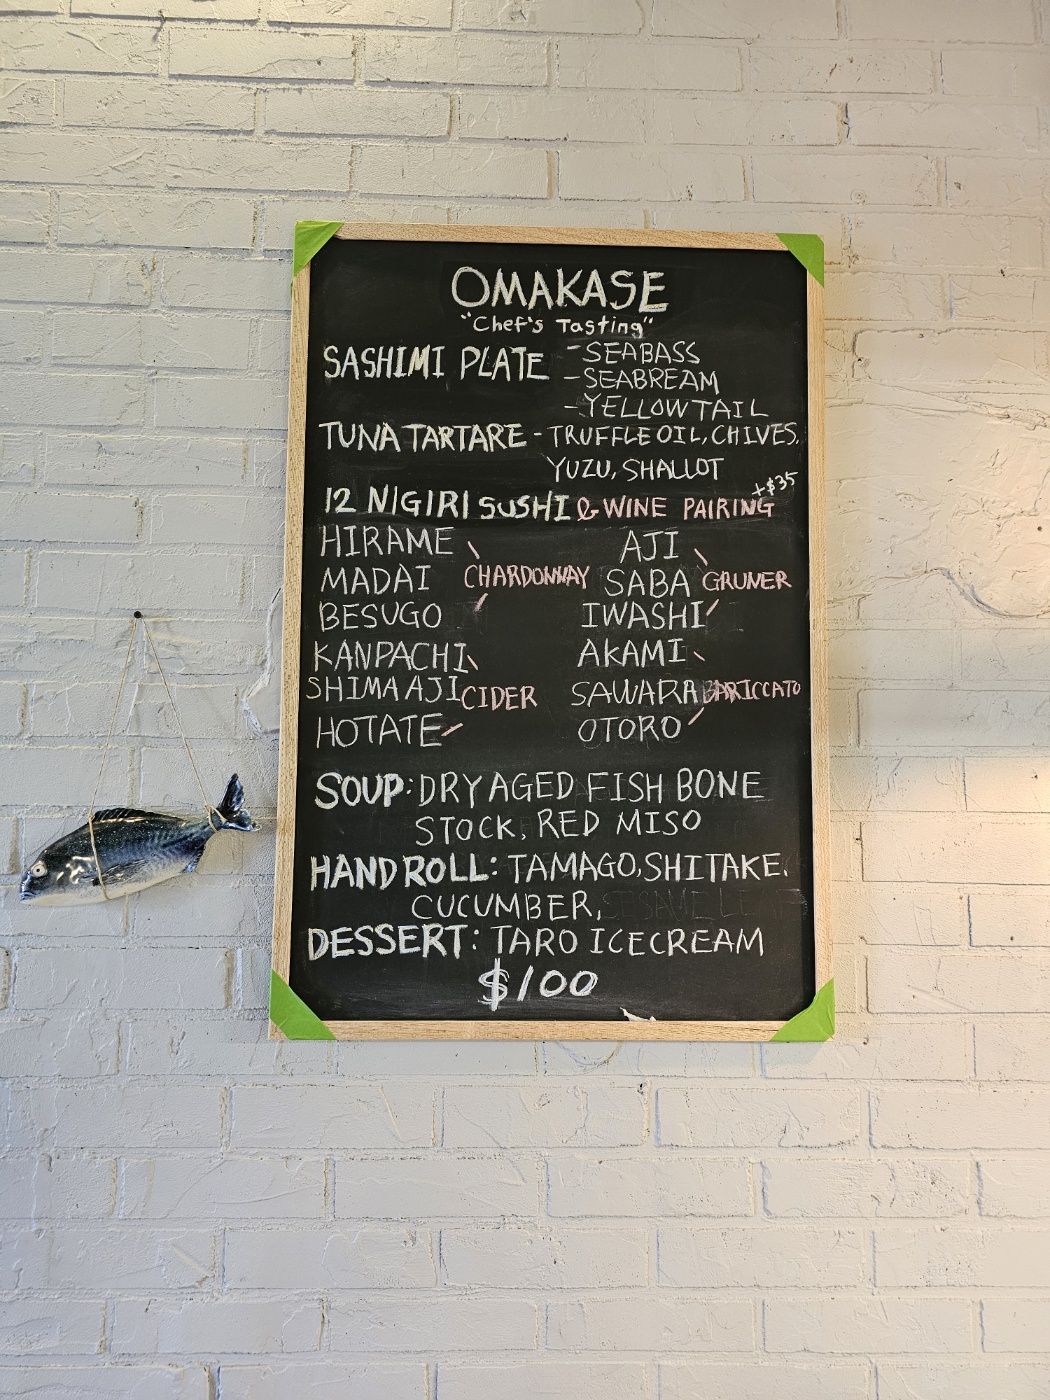 OMAKASE
"Chef's Tasting"
SASHIMI PLATE - SEABASS
- SEABREAM
- YELLOWTAIL
TUNA TARTARE - TRUFFLE OIL, CHIVES,
YUZU, SHALLOT
12 NIGIRI SUSHI & WINE PAIRING +$35
HIRAME AJI
MADAI CHARDONNAY SABA GRUNER
BESUGO IWASHI
KANPACHI AKAMI
SHIMA AJI CIDER SAWARA BARICCATO
HOTATE OTORO
SOUP: DRY AGED FISH BONE
STOCK, RED MISO
HAND ROLL: TAMAGO, SHITAKE,
CUCUMBER, SESAME LEAF
DESSERT: TARO ICECREAM
$100